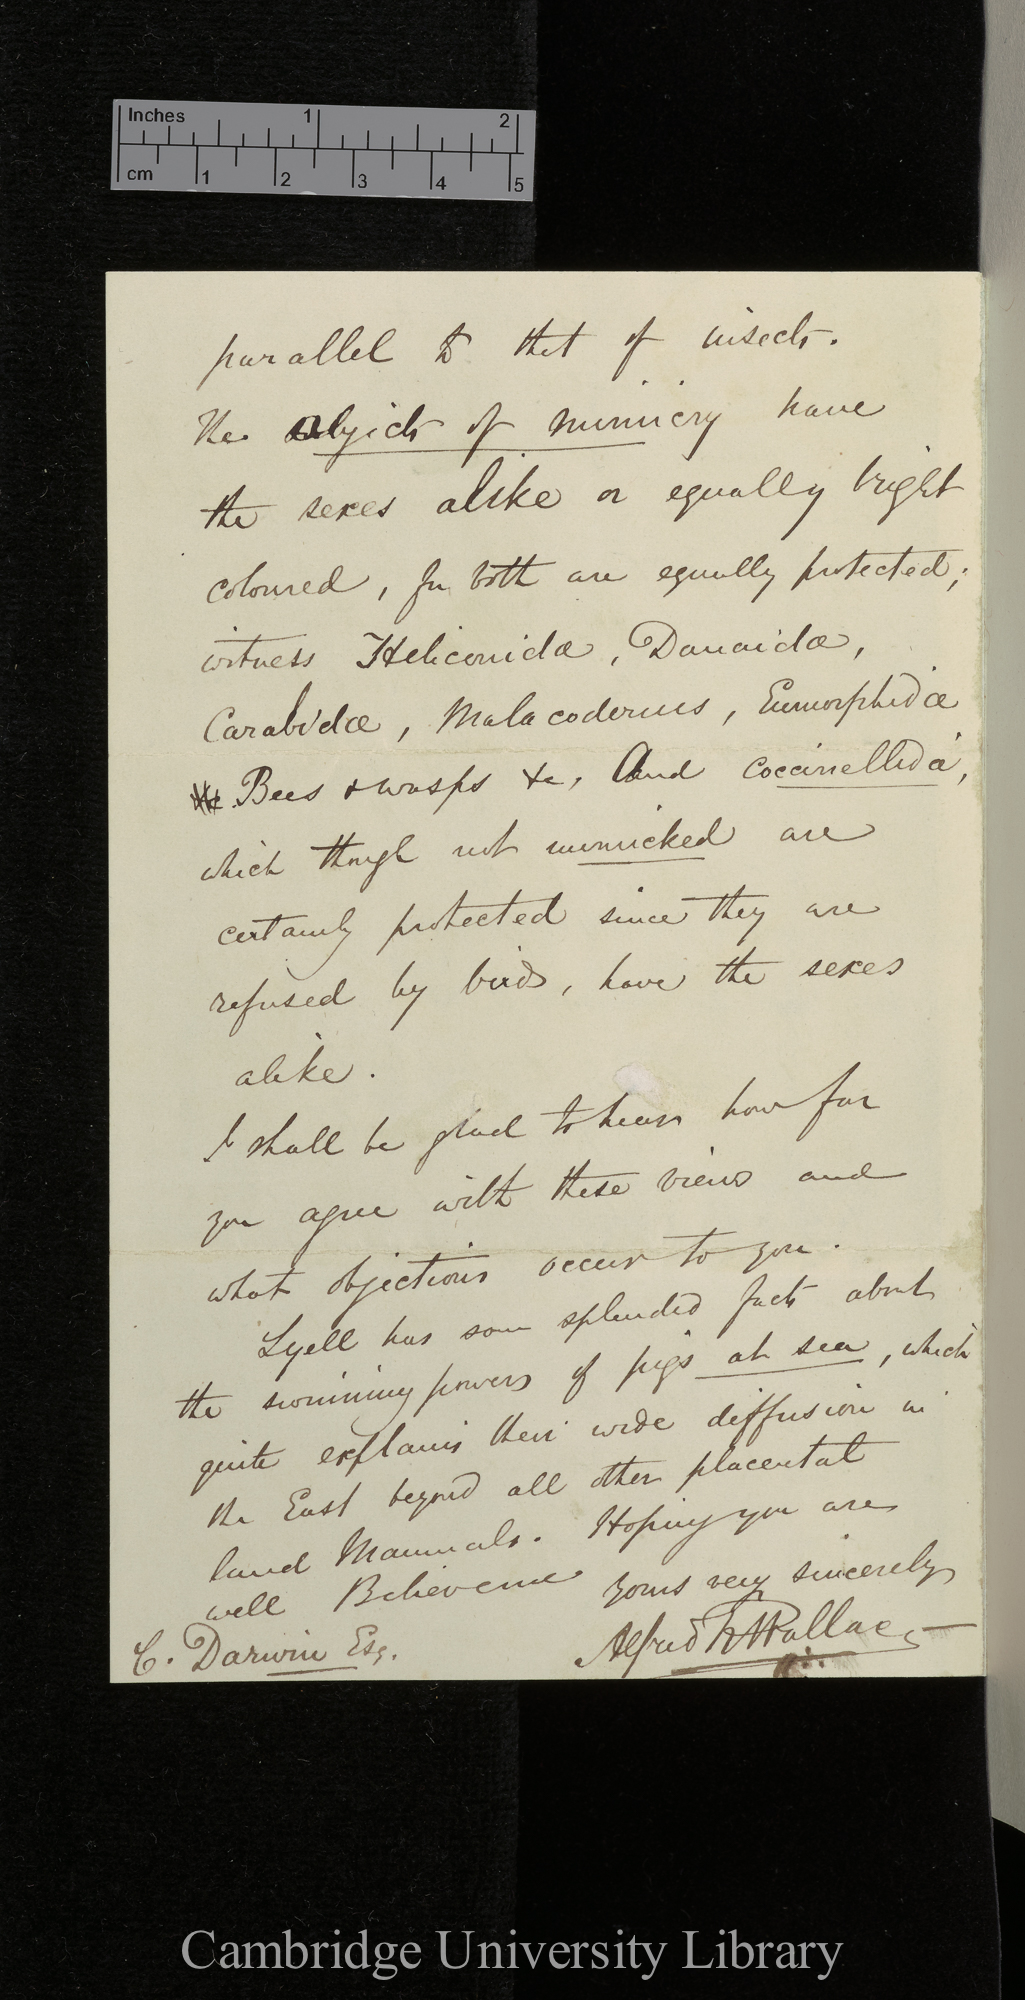 Inches 1 2
cm 1 2 3 4 5
parallel to that of insects.
The objects of mimicry have
the sexes alike or equally bright
coloured, for both are equally protected;
witness Heliconidæ, Danaidæ,
Carabidæ, Malacoderms, Eumorphidæ
Bees & wasps &c, And coccinellidæ,
which though not mimicked are
certainly protected since they are
refused by birds, have the sexes
alike.
I shall be glad to hear how far
you agree with these views and
what objections occur to you.
Lyell has some splendid facts about
the swimming powers of pigs at sea, which
quite explains their wide diffusion in
the East beyond all other placental
land Mammals. Hoping you are
well Believe me yours very sincerely
C. Darwin Esq. Alfred R Wallace
Cambridge University Library